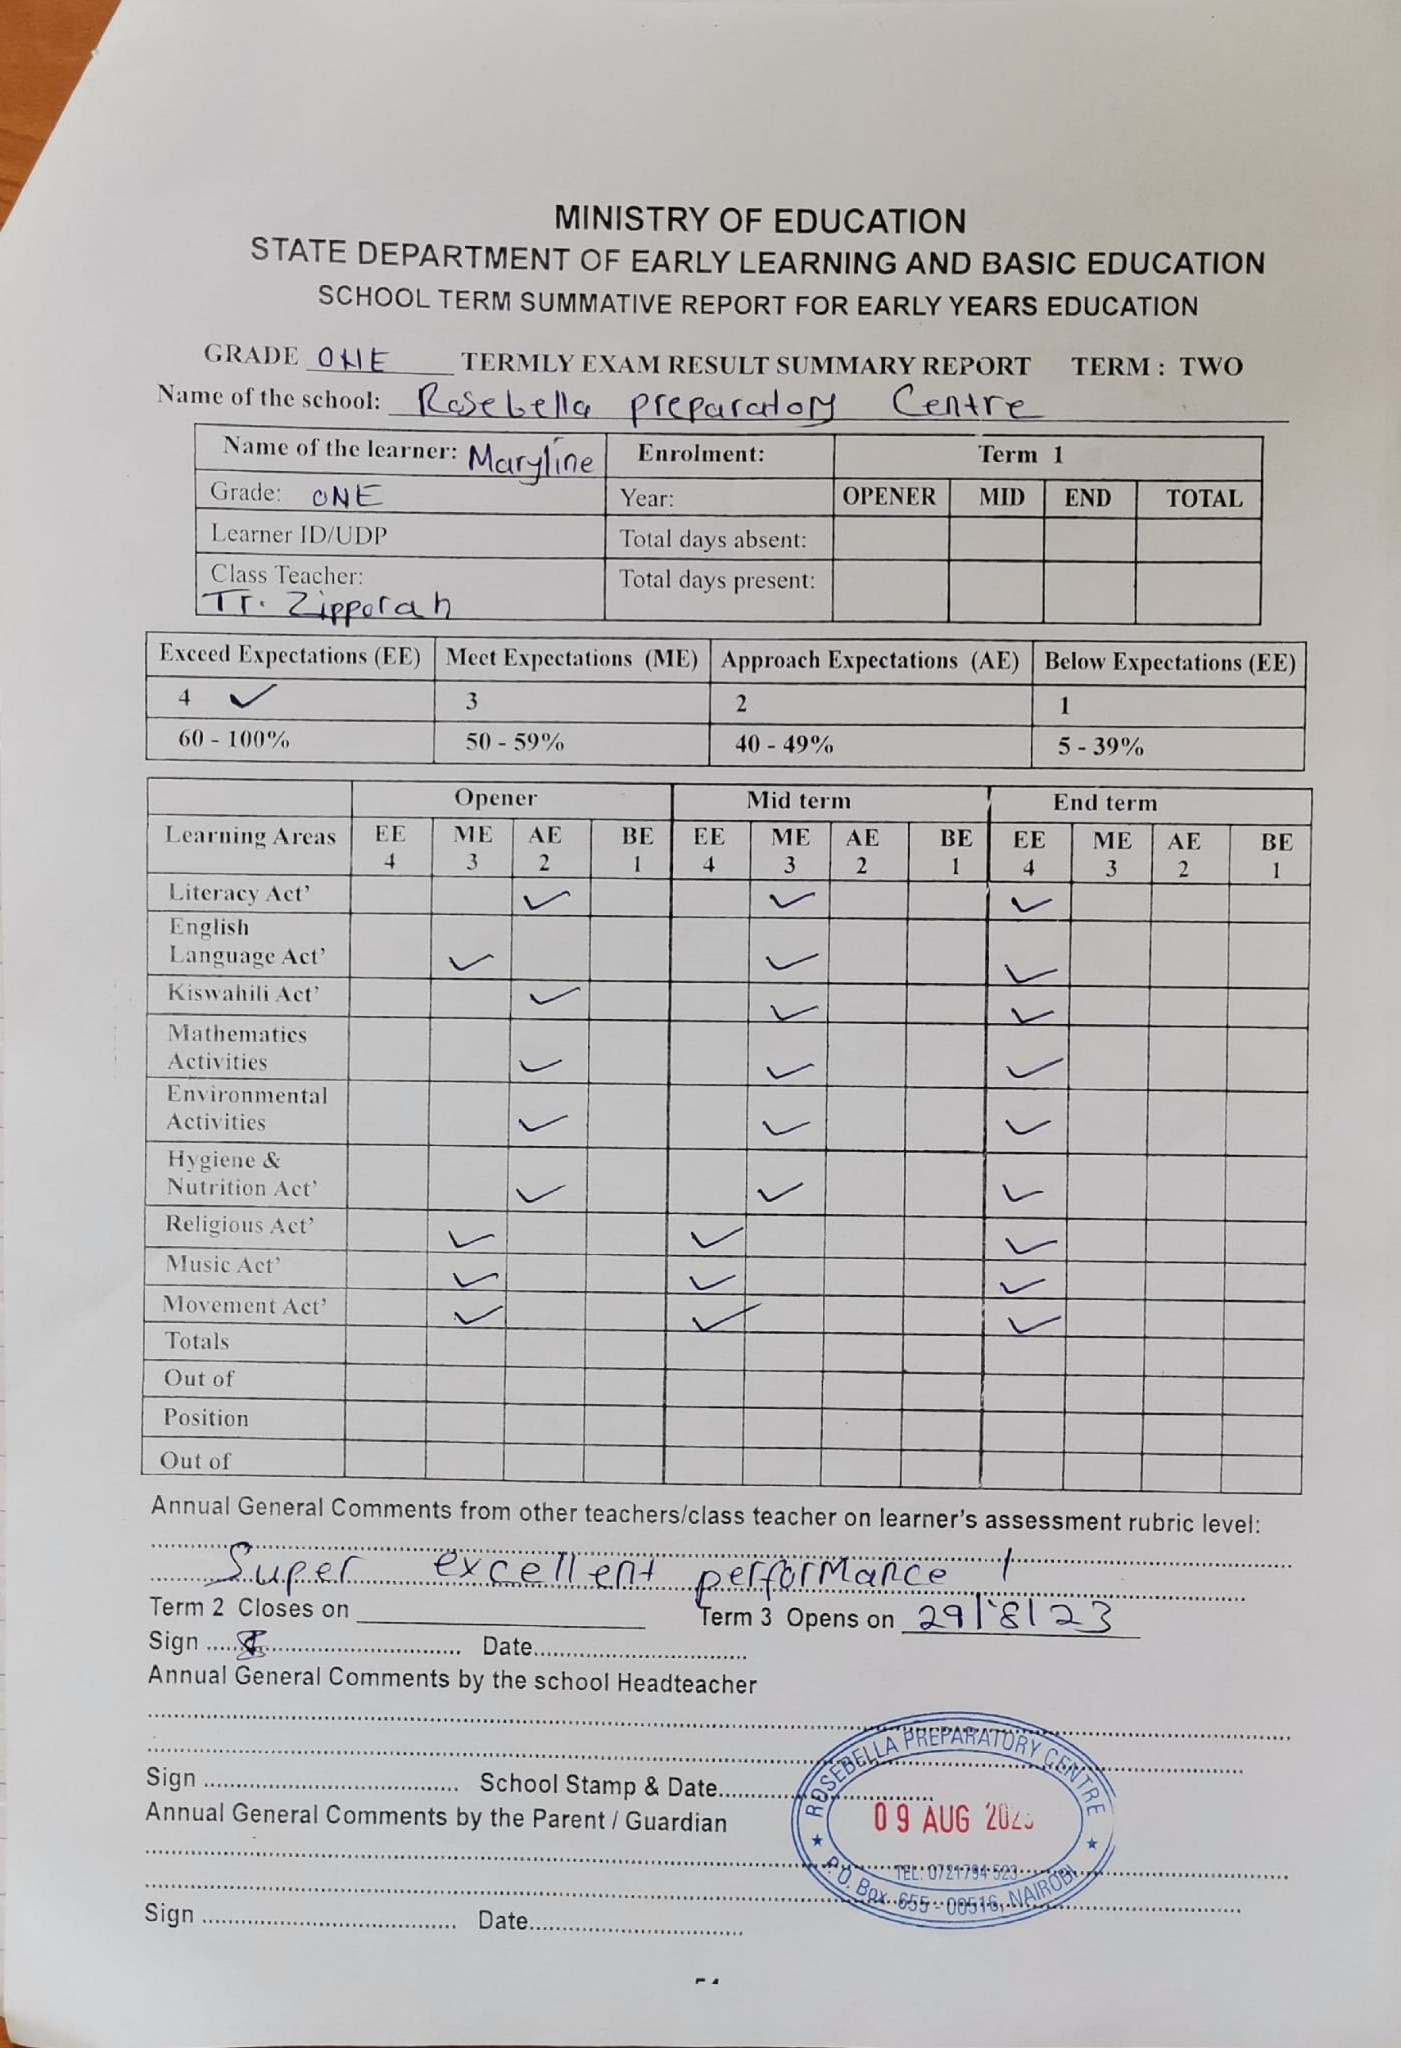 MINISTRY OF EDUCATION
STATE DEPARTMENT OF EARLY LEARNING AND BASIC EDUCATION
SCHOOL TERM SUMMATIVE REPORT FOR EARLY YEARS EDUCATION
GRADE ONE TERMLY EXAM RESULT SUMMARY REPORT TERM : TWO
Name of the school: Rosebella preparatory Centre
Name of the learner: Maryline Enrolment: Term 1
Grade: ONE Year: OPENER MID END TOTAL
Learner ID/UDP Total days absent:
Class Teacher: Total days present:
Tr. Zipporah
Exceed Expectations (EE) Meet Expectations (ME) Approach Expectations (AE) Below Expectations (EE)
4 ✓ 3 2 1
60 - 100% 50 - 59% 40 - 49% 5 - 39%
Opener Mid term End term
Learning Areas EE ME AE BE EE ME AE BE EE ME AE BE
4 3 2 1 4 3 2 1 4 3 2 1
Literacy Act’ ✓ ✓ ✓
English
Language Act’ ✓ ✓ ✓
Kiswahili Act’ ✓ ✓ ✓
Mathematics
Activities ✓ ✓ ✓
Environmental
Activities ✓ ✓ ✓
Hygiene &
Nutrition Act’ ✓ ✓ ✓
Religious Act’ ✓ ✓ ✓
Music Act’ ✓ ✓ ✓
Movement Act’ ✓ ✓ ✓
Totals
Out of
Position
Out of
Annual General Comments from other teachers/class teacher on learner’s assessment rubric level:
Super excellent performance !
Term 2 Closes on Term 3 Opens on 29/8/23
Sign Date
Annual General Comments by the school Headteacher
Sign School Stamp & Date
Annual General Comments by the Parent / Guardian
Sign Date
ROSEBELLA PREPARATORY CENTRE
09 AUG
TEL: 0721794 523
P.O. Box 655 - 00516, NAIROBI